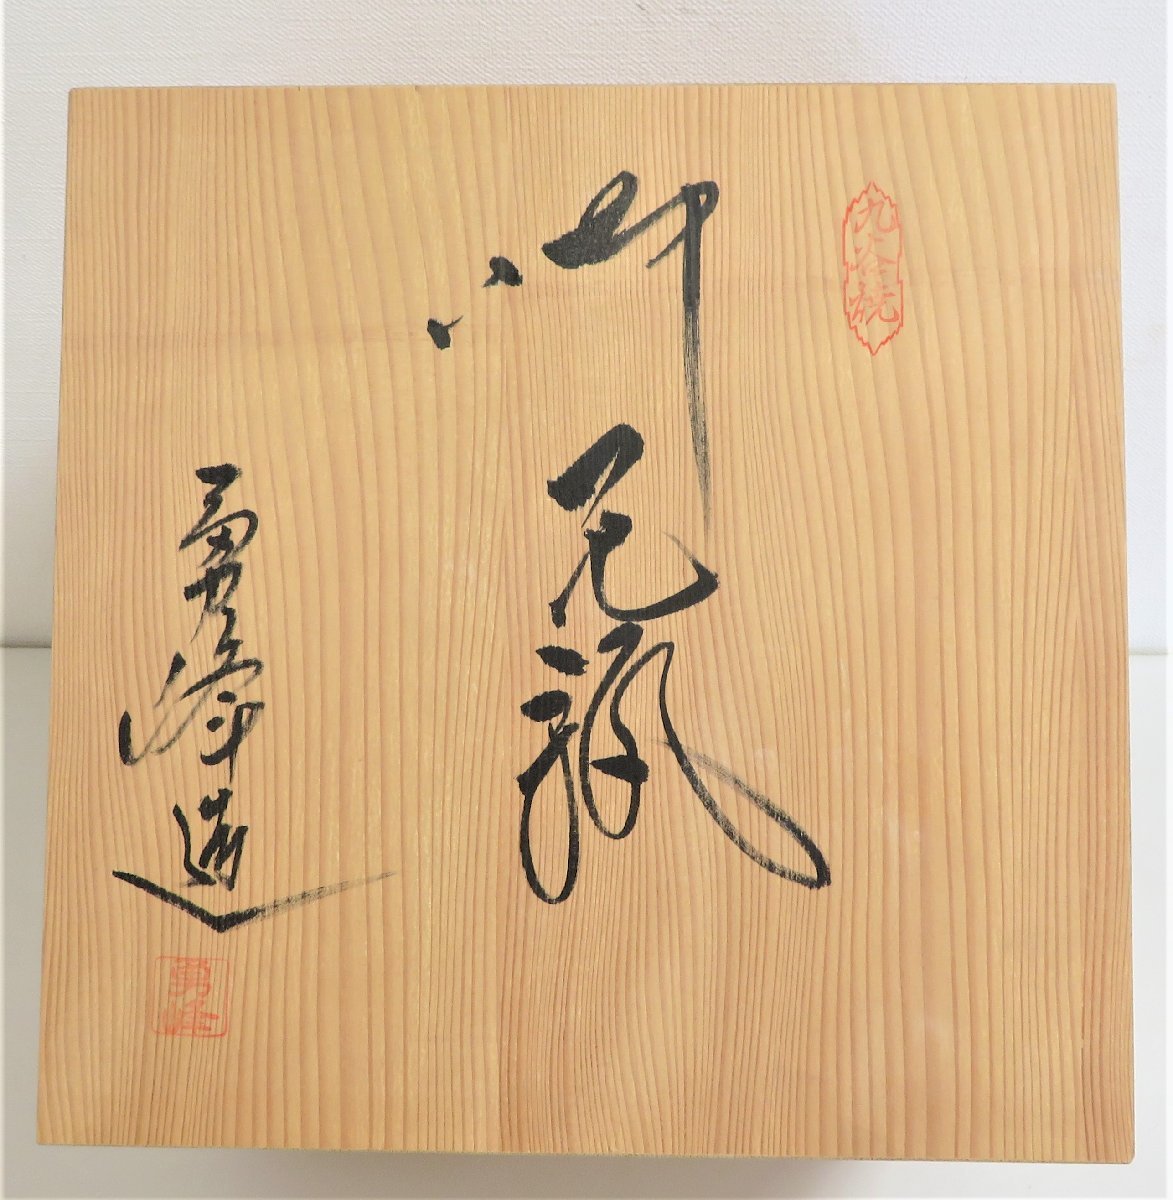 九谷焼
花瓶
勇峰造
勇峰